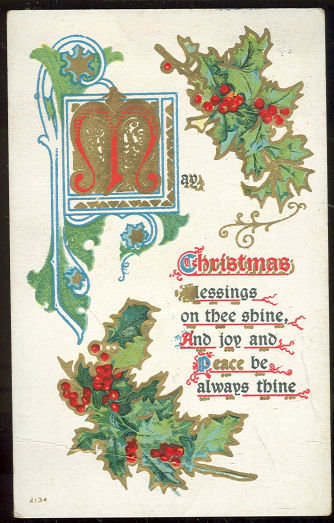 May
Christmas
Blessings
on thee shine,
And joy and
Peace be
always thine
2134